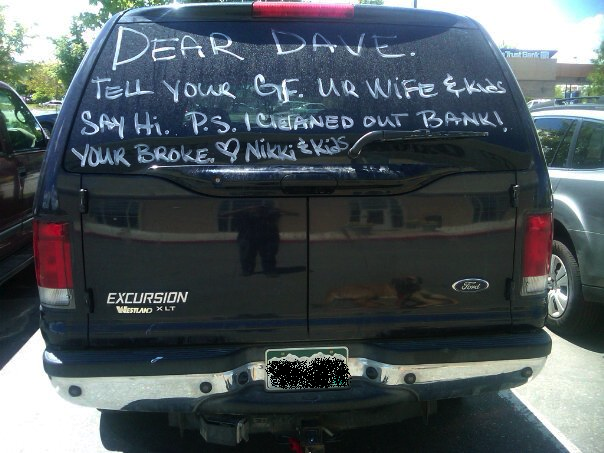 DEAR DAVE.
TELL YOUR GF. UR WIFE & KidS
SAY Hi. P.S. I CLEANED OUT BANK!
YOUR BROKE. ♡ Nikki & KidS
Trust Bank
EXCURSION
WESTLAND XLT
Ford